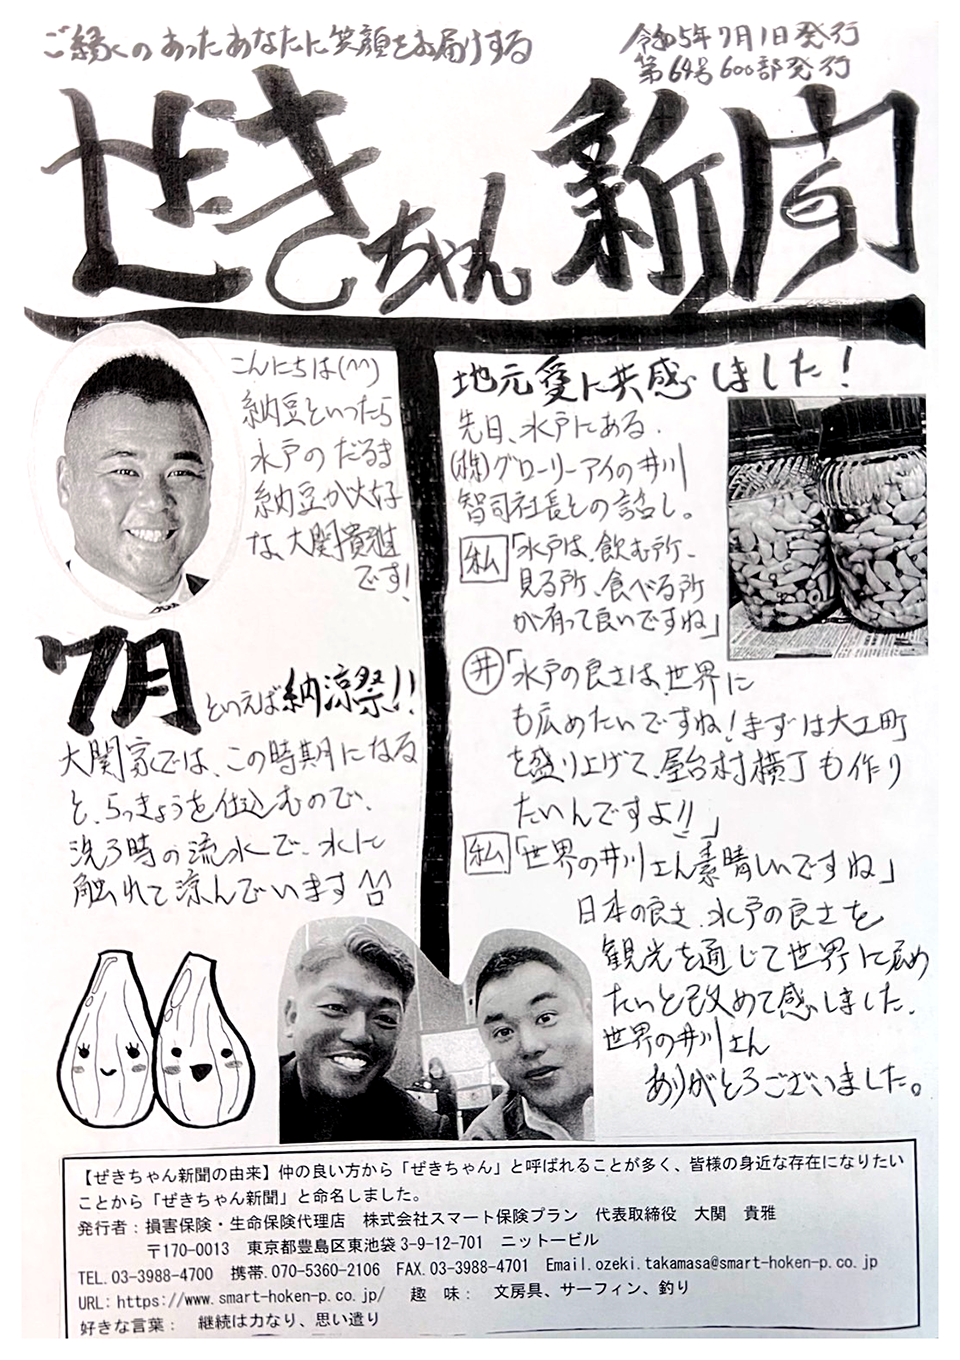 ご縁のあったあなたに笑顔をお届けする
令和5年7月1日発行
第64号600部発行
ぜきちゃん新聞
こんにちは(^^)
納豆といったら
水戸のだるま
納豆が大好き
な、大関貴雅
です!
7月といえば納涼祭!!
大関家では、この時期になる
と、らっきょうを仕込むので、
洗う時の流水で、水に
触れて涼んでいます
地元愛に共感しました!
先日、水戸にある
(株)グローリーアイの井川
智司社長との話し。
私「水戸は、飲む所、
見る所、食べる所
が有って良いですね」
井「水戸の良さは、世界に
も広めたいですね!まずは大工町
を盛り上げて、屋台村横丁も作り
たいんですよ!!」
私「世界の井川さん素晴しいですね」
日本の良さ、水戸の良さを
観光を通じて世界に広め
たいと改めて感じました。
世界の井川さん
ありがとうございました。
【ぜきちゃん新聞の由来】仲の良い方から「ぜきちゃん」と呼ばれることが多く、皆様の身近な存在になりたい
ことから「ぜきちゃん新聞」と命名しました。
発行者：損害保険・生命保険代理店　株式会社スマート保険プラン　代表取締役　大関　貴雅
〒170-0013　東京都豊島区東池袋3-9-12-701　ニットービル
TEL.03-3988-4700　携帯.070-5360-2106　FAX.03-3988-4701　Email.ozeki.takamasa@smart-hoken-p.co.jp
URL：https://www.smart-hoken-p.co.jp/　趣　味：　文房具、サーフィン、釣り
好きな言葉：　継続は力なり、思い遣り